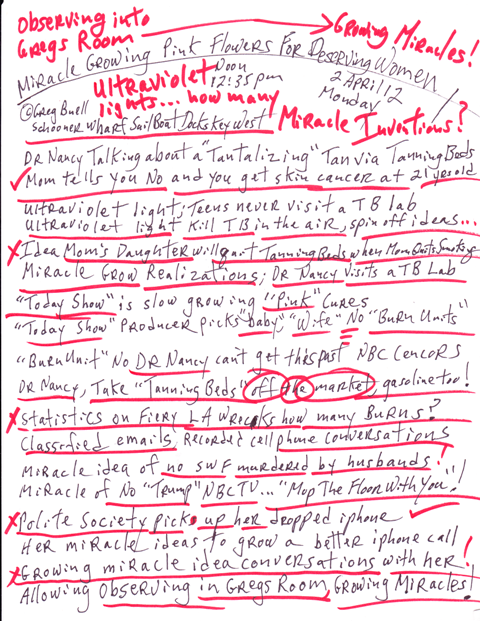 Observing into
Gregs Room
Growing Miracles!
Miracle Growing Pink Flowers For Deserving Women
Ultraviolet
Noon
12:35pm
2 April 12
Monday
lights... how many
Miracle Inventions?
@Greg Buell
Schooner Wharf SailBoat Docks Key West
Dr Nancy Talking about a "Tantalizing" Tan via Tanning Beds
Mom tells you No and you get skin cancer at 21 yes old
Ultraviolet light; Teens never visit a TB lab
Ultraviolet light kill TB in the air, spin off ideas...
Idea Mom's Daughter will quit Tanning Beds when Mom Quits Smoking
Miracle Grow Realizations; Dr Nancy Visits a TB Lab
"Today Show" is slow growing "Pink" Cures
"Today Show" Producer picks "baby; "Wife" No "Burn Units"
"Burn Unit" No Dr Nancy can't get this past NBC Cencors
Dr Nancy, Take "Tanning Beds" off the market, gasoline too!
Statistics on Fiery LA Wrecks how many Burns?
Classified emails, Recorded cell phone conversations
Miracle idea of no SWF murdered by husbands!
Miracle of No "Trump" NBC TV... "Mop The Floor With You"!
Polite Society picks up her dropped iphone
Her miracle ideas to grow a better iphone call
Growing miracle idea conversations with her!
Allowing Observing in Gregs Room, Growing Miracles!